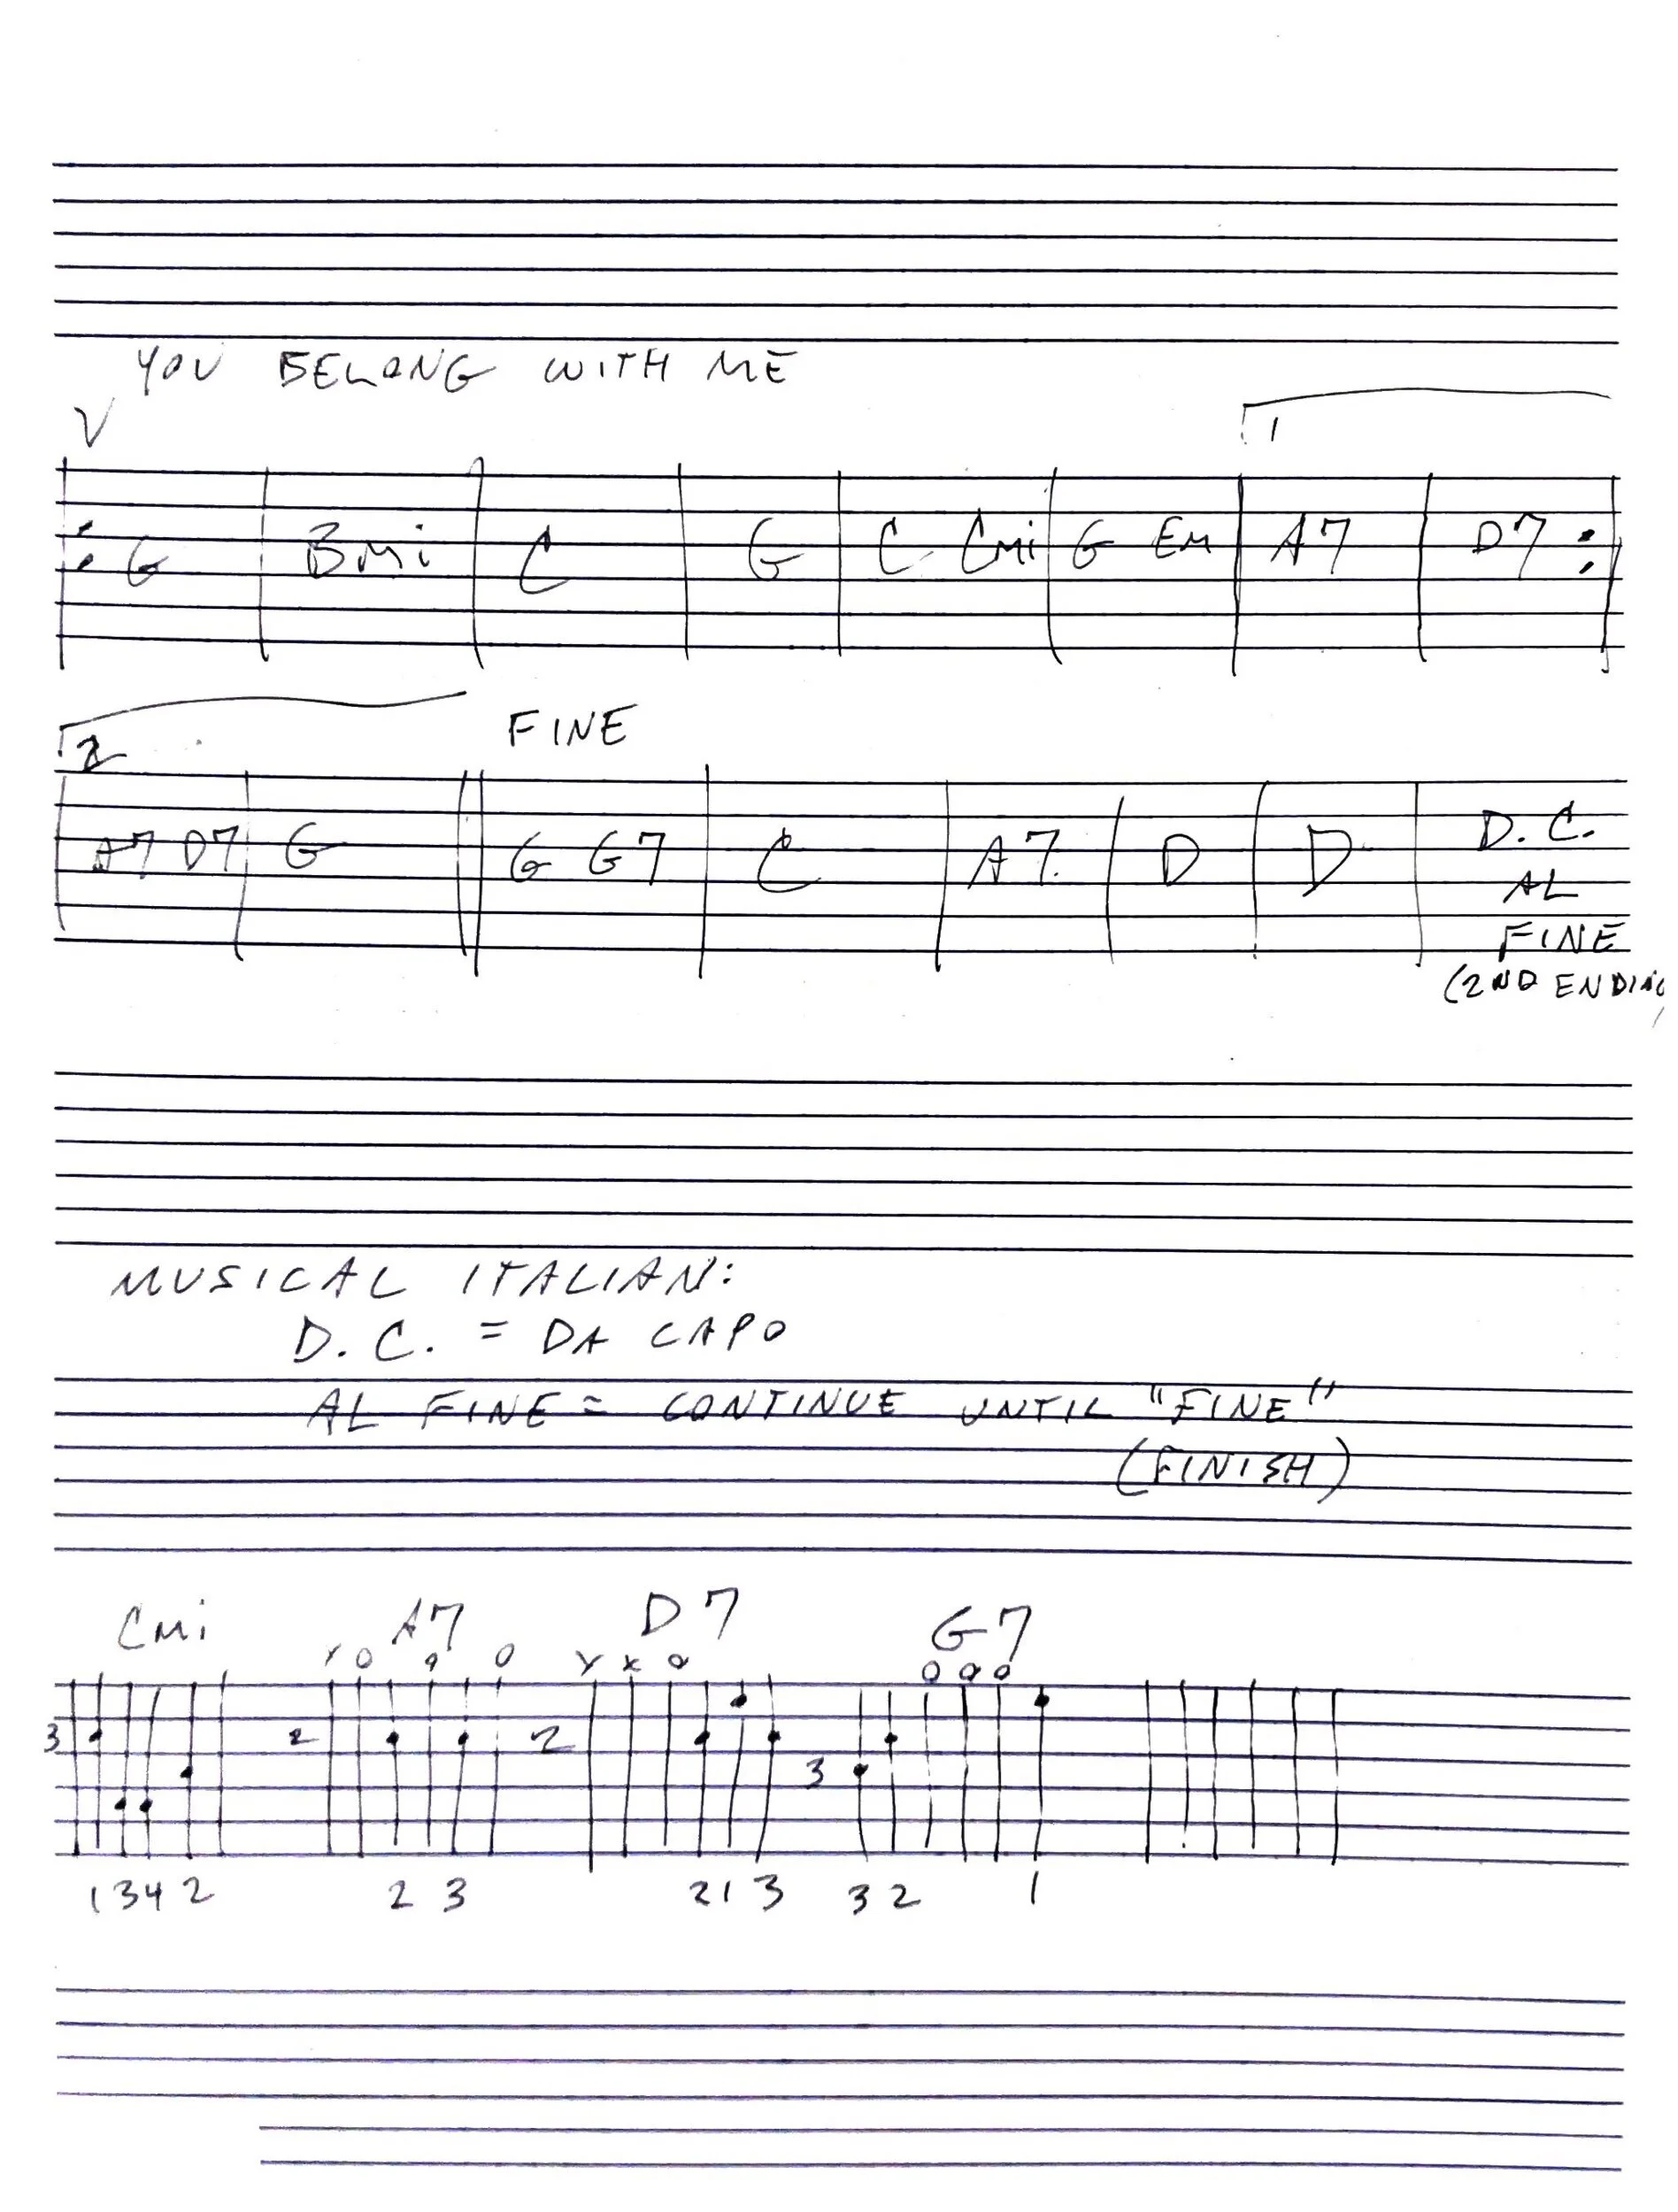 YOU BELONG WITH ME
V
1
: G Bmi C G C Cmi G Em A7 D7 :
2
FINE
A7 D7 G G G7 C A7 D D D.C.
AL
FINE
(2ND ENDING)
MUSICAL ITALIAN:
D.C. = DA CAPO
AL FINE = CONTINUE UNTIL "FINE"
(FINISH)
Cmi A7 D7 G7
x o o o x x o o o o
3 2 2 3
1 3 4 2 2 3 2 1 3 3 2 1